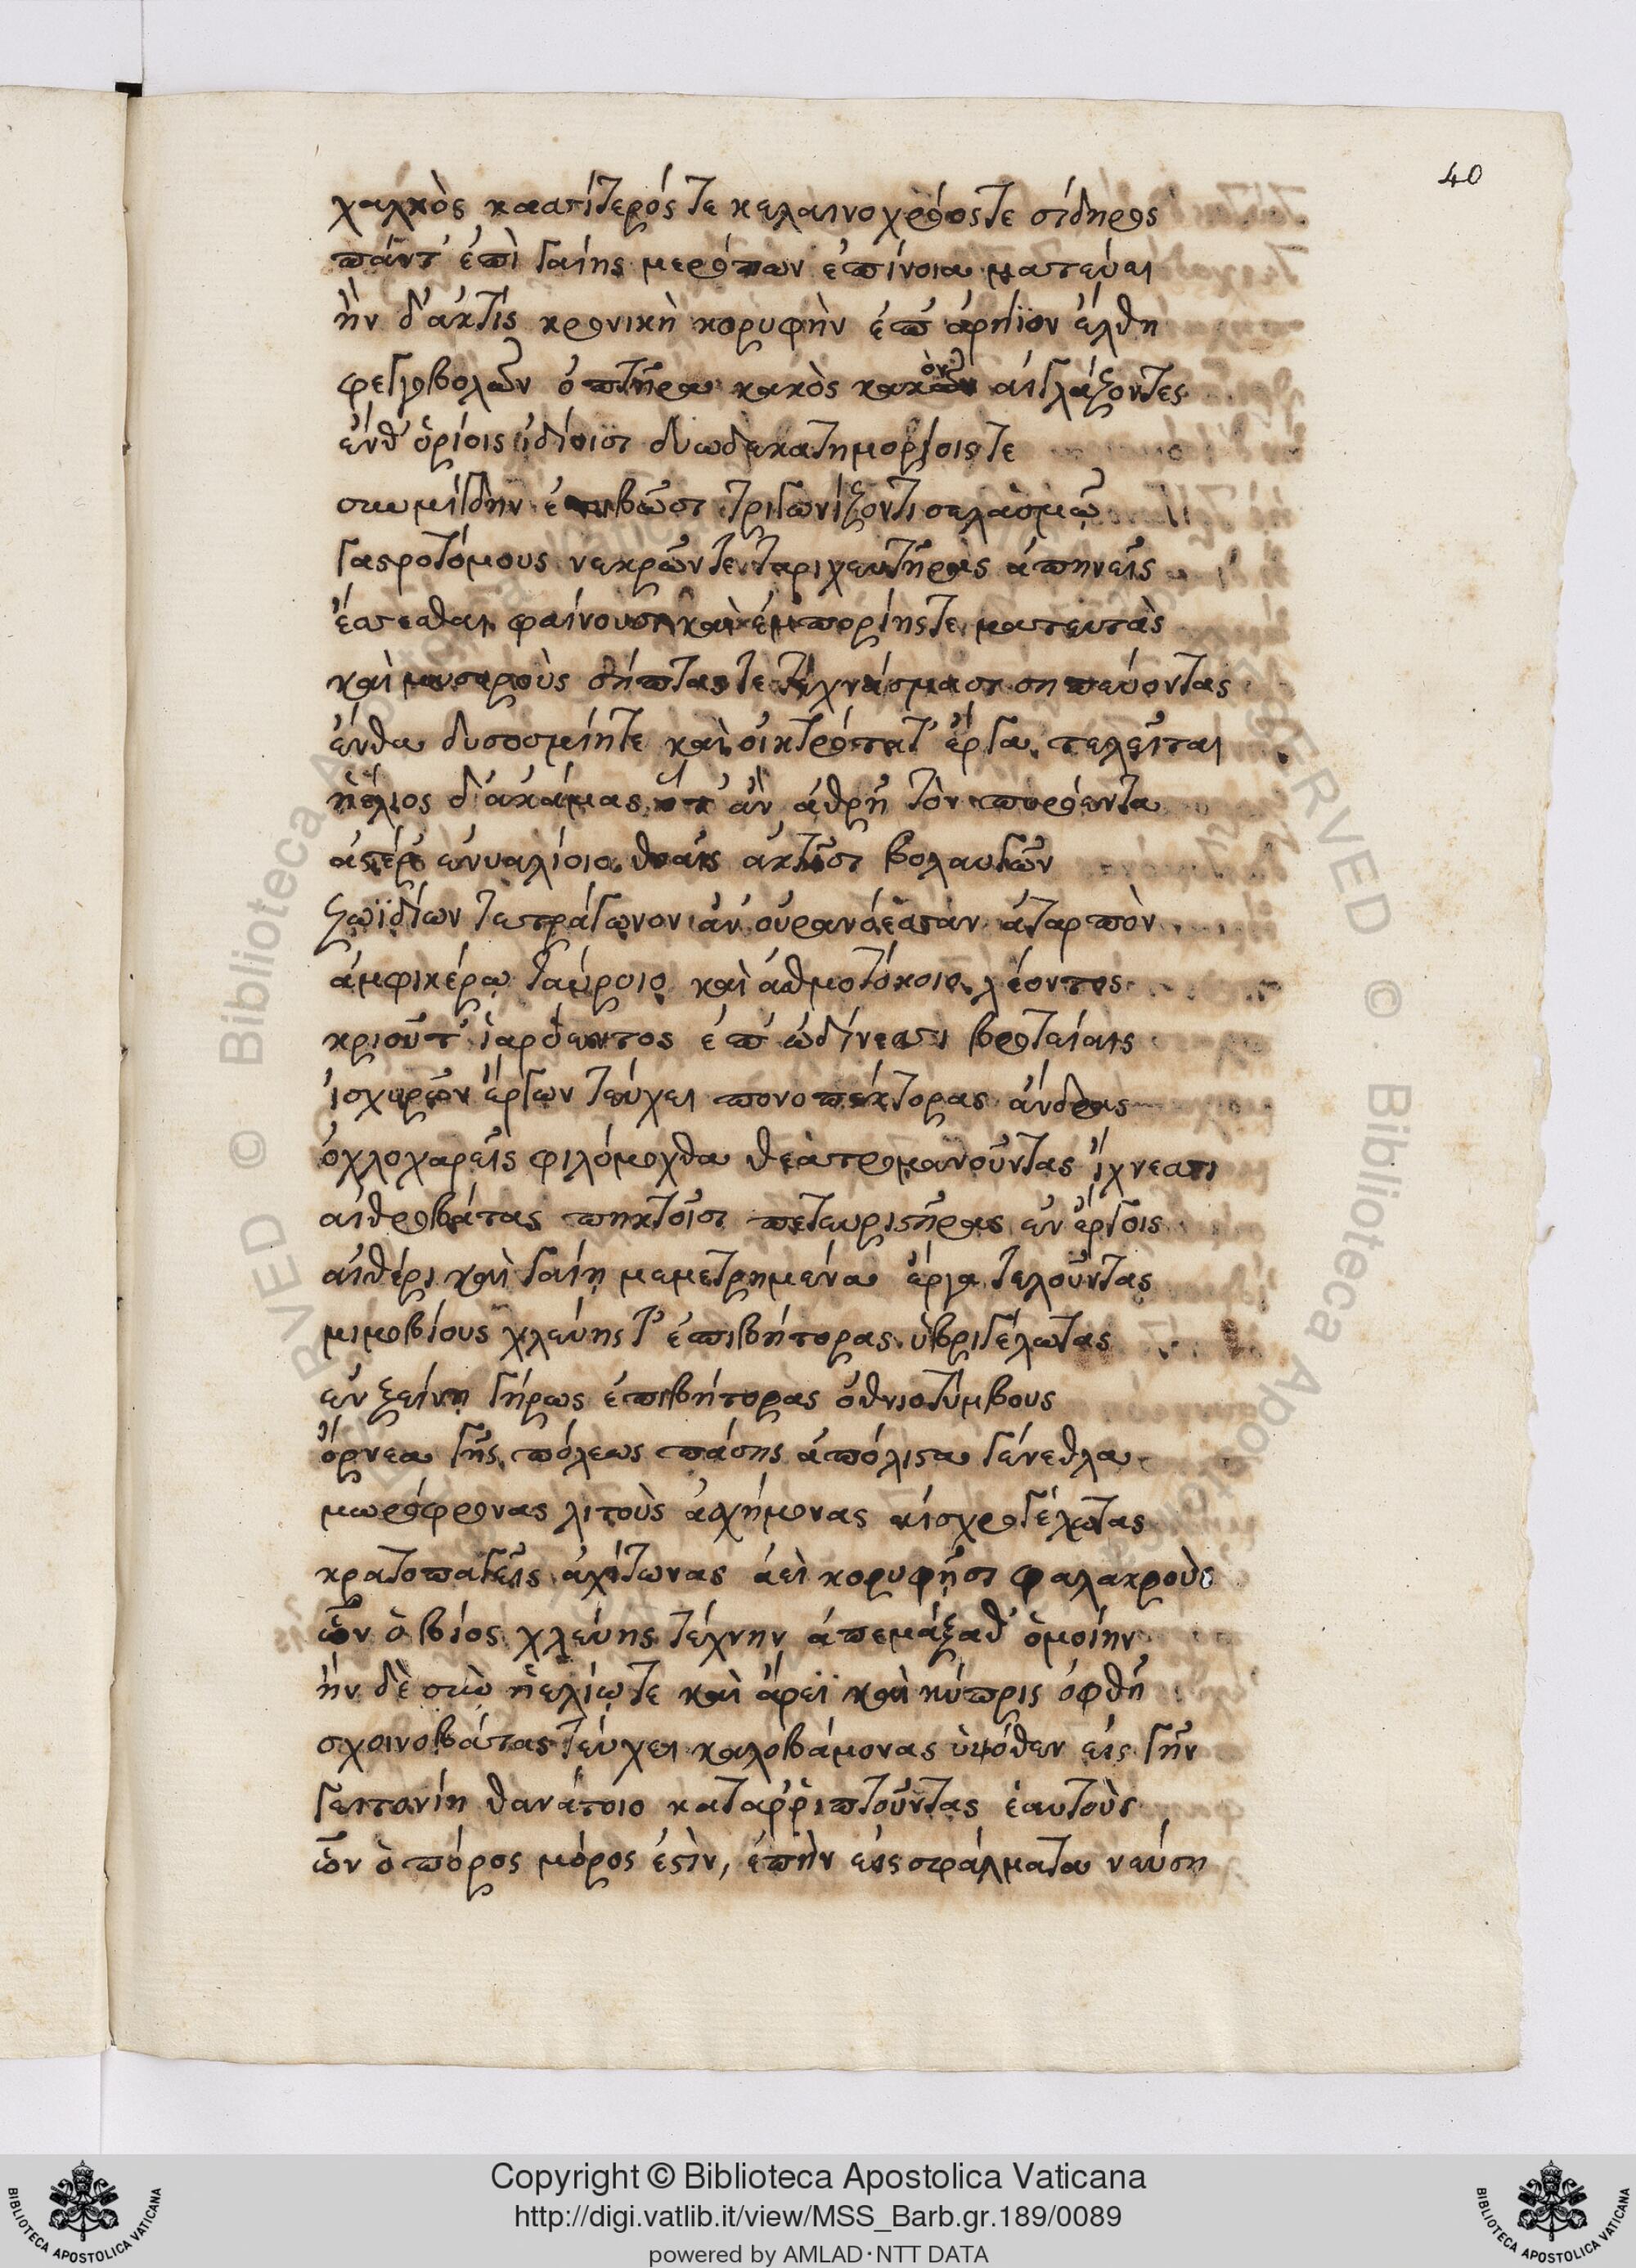 40
χαλκὸς κασσίτερός τε κελαινοχρόος τε σίδηρος
πάντ' ἐπὶ γαίης μερόπων ἐπίνοια ματεύει
ἢν δ' ἀκτὶς κρονικὴ κορυφὴν ἐπ' ἀρήϊον ἔλθη
φεγγοβολῶν ὀπτῆρα κακὸς κακὸν αὐγάζοντες
ἐνθ' ὁρίοις ἰδίοισι δυωδεκατημορίοις τε
σὺν μίγδην ἐπιβῶσι τριγωνίζοντι σελασμῷ
γαστροτόμους νεκρῶν τε ταριχευτῆρας ἀπηνεῖς
ἔσσεσθαι φαίνουσι καὶ ἐμπορίης τε ματευτὰς
καὶ μυσαροὺς σήπτας τε τεχνάσμασι σηπεύοντας
ἔνθα δυσοσμίη τε καὶ οἰκτρότατ' ἔργα τελεῖται
ἠέλιος δ' ἀκάμας ὅτ' ἂν ἀθρῇ τὸν πυρόεντα
ἀστέρ' ἐνυαλίοιο θοαῖς ἀκτῖσι βολαυγῶν
ζωϊδίων τετράγωνον ἀν' οὐρανόεσσαν ἀταρπὸν
ἀμφικέρῳ ταύροιο καὶ ἀθμοτόκοιο λέοντος
κριοῦ τ' ἰαρόεντος ἐπ' ὠδίνεσσι βροτείαις
ἰσχυρῶν ἔργων τεύχει πονοπαίκτορας ἄνδρας
ὀχλοχαρεῖς φιλόμοχθα θεατρομανοῦντας ἴχνεσσι
αἰθροβάτας πηκτοῖσι πεταυριστῆρας ἐν ἔργοις
αἰθέρι καὶ γαίῃ μεμετρημένα ἔργα τελοῦντας
μιμοβίους χλεύης τ' ἐπιβήτορας ὑβριγέλωτας
ἐν ξείνῃ γήρως ἐπιβήτορας ὀθνιοτύμβους
ὄρνεα γῆς πόλεως πάσης ἀπόλιστα γένεθλα
μωρόφρονας λιτοὺς ἀσχήμονας αἰσχρογέλωτας
κρατοπαγεῖς ἀχίτωνας ἀεὶ κορυφῇσι φαλακροὺς
ὧν ὁ βίος χλεύης τέχνην ἀπεμάξαθ' ὁμοίην
ἢν δὲ σὺν ἠελίῳ τε καὶ ἄρεϊ καὶ κύπρις ὀφθῇ
σχοινοβάτας τεύχει καλοβάμονας ὑψόθεν εἰς γῆν
γειτονίῃ θανάτοιο καταῤῥιπτοῦντας ἑαυτοὺς
ὧν ὁ πόρος μόρος ἐστὶν, ἐπὴν εἰς σφάλματα νεύσῃ
Copyright © Biblioteca Apostolica Vaticana
http://digi.vatlib.it/view/MSS_Barb.gr.189/0089
powered by AMLAD·NTT DATA
BIBLIOTECA APOSTOLICA VATICANA
BIBLIOTECA APOSTOLICA VATICANA